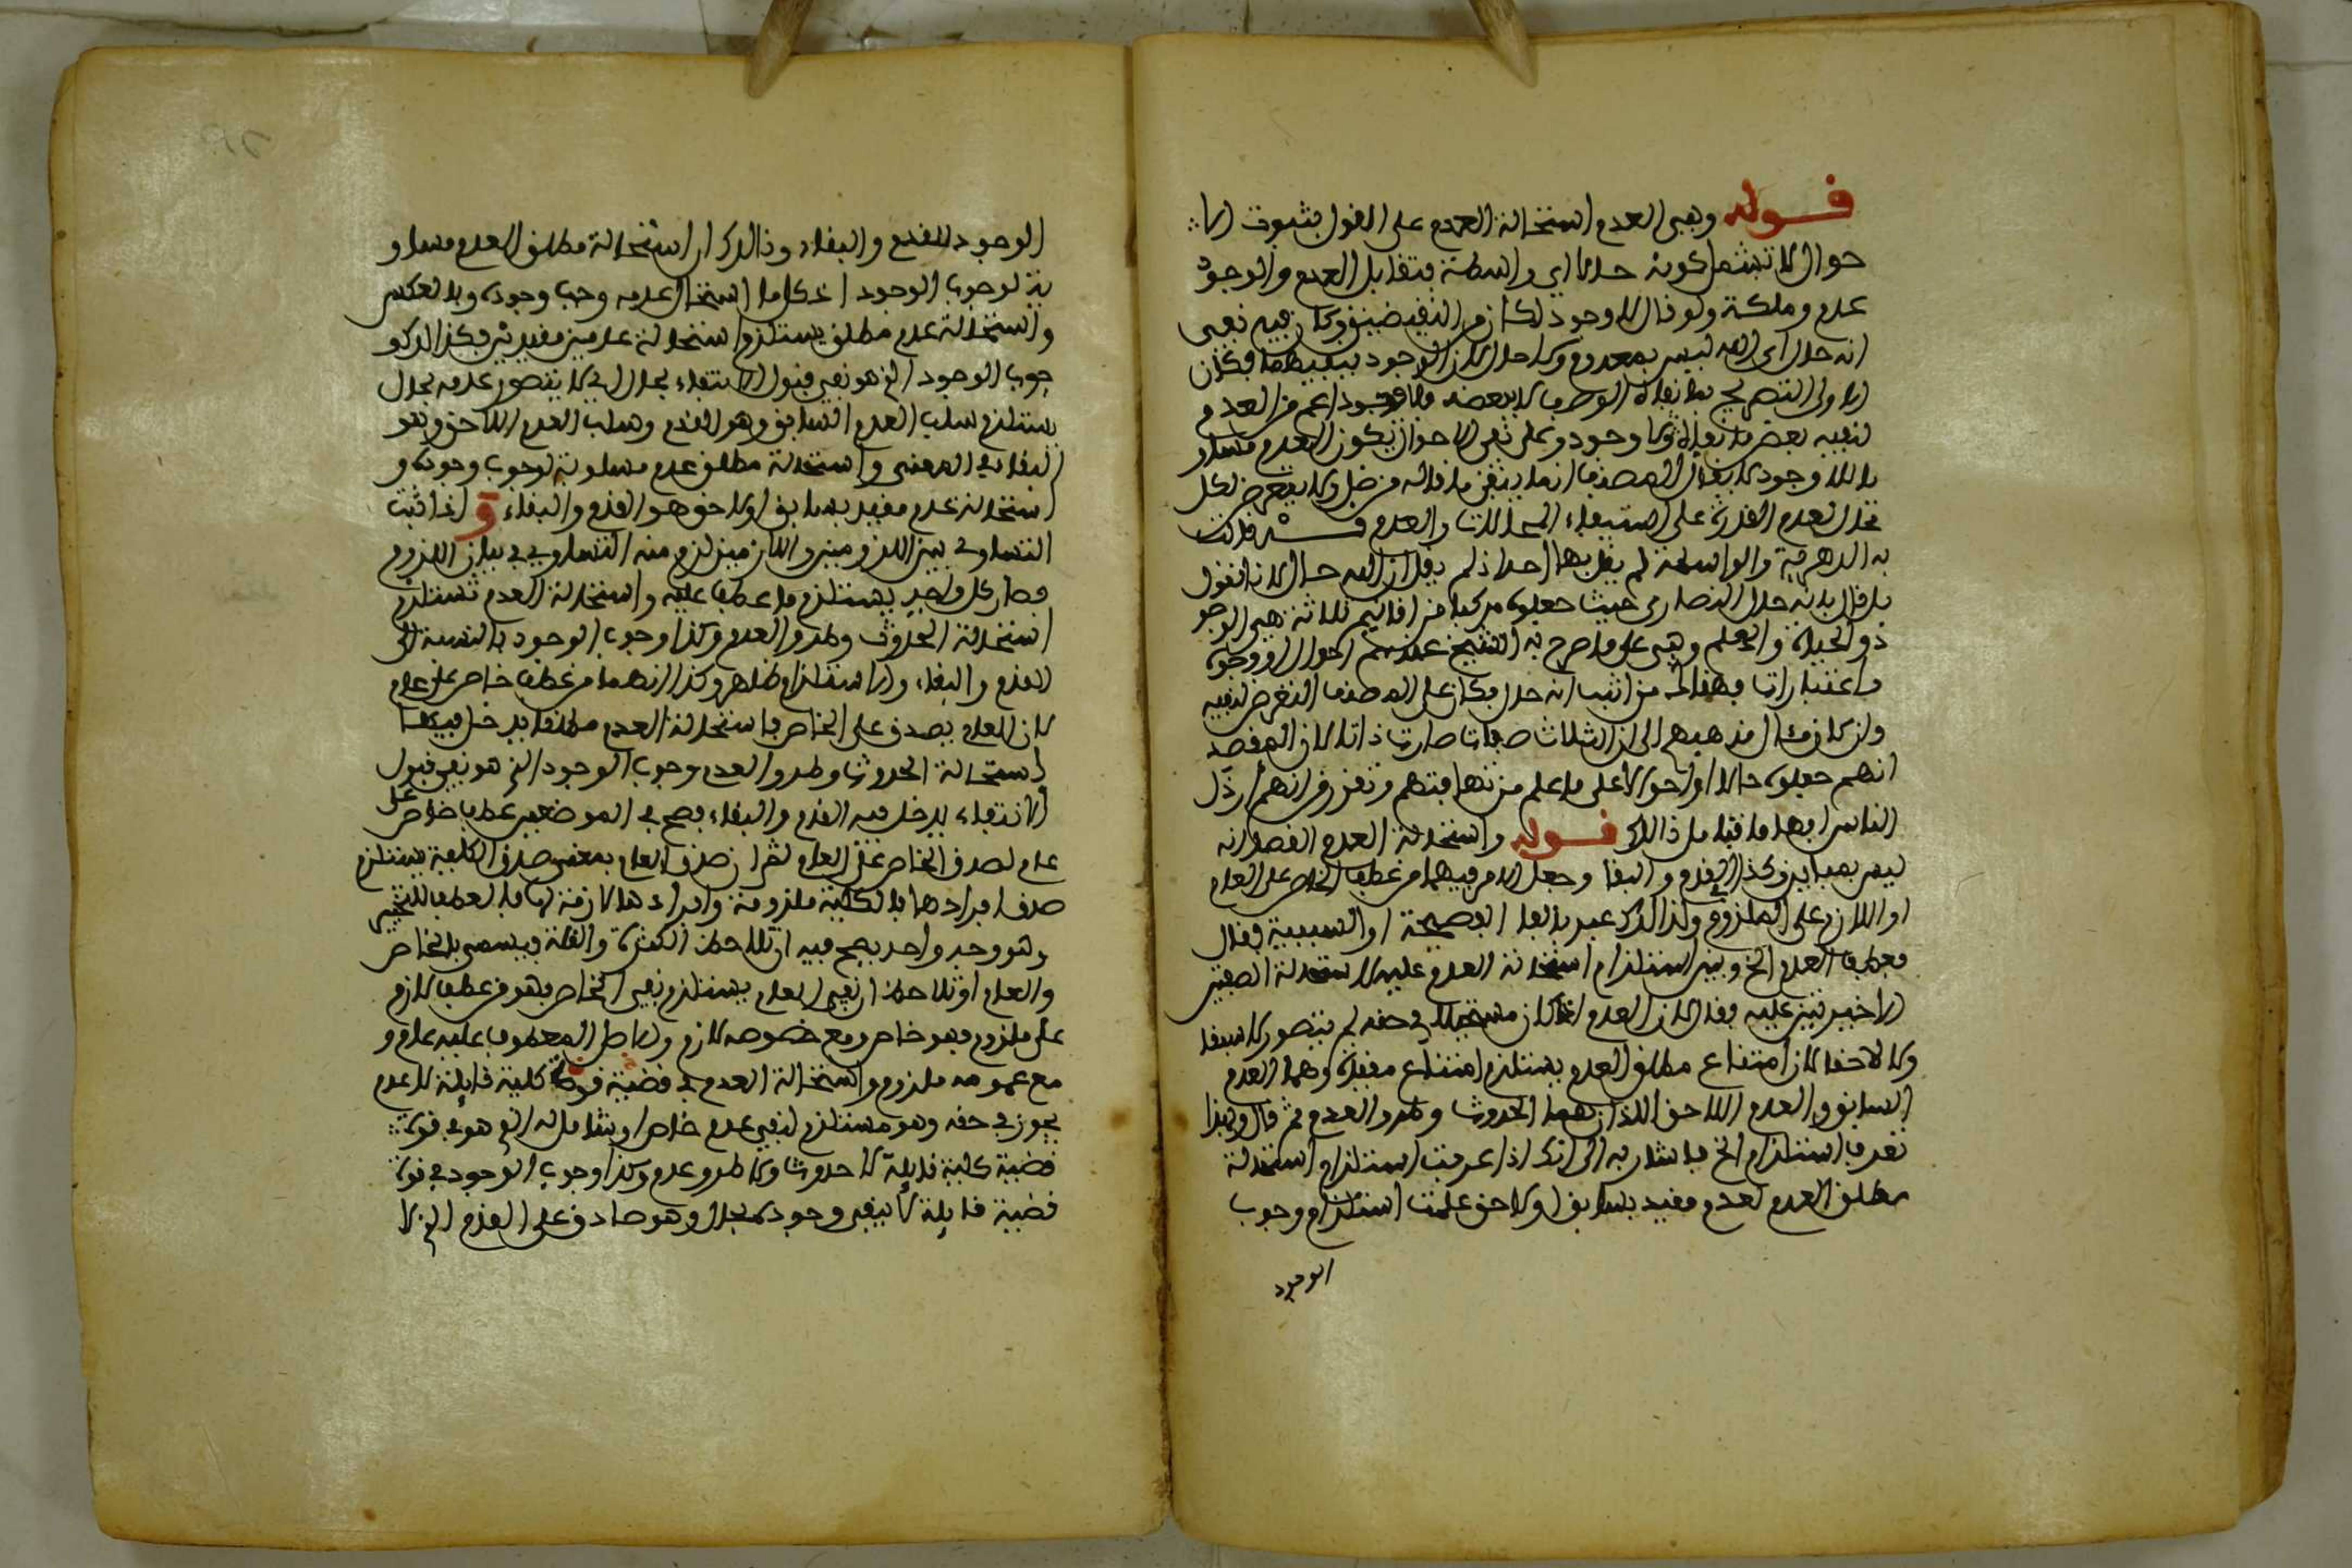 قوله ونفي العدم استحالة العدم على القول بثبوت الا
حوال لا تبقى كونه حالا اي واسطة فتقابل العدم والوجود
عدم وملكة ولو قال لا وجود لكان من النقيضين وكان فيه نفي
انه حال اي الله ليس بمعدوم ولا حال لان الوجود فكان
الاولى التصريح بما نفاه لا ببعضه اعم من العدم
فنفيه بعض ما نفاه لا وجود وعلى نفي الاحوال يكون العدم مساو
يا للا وجود لا يقال المصنف انما ينفي ما قاله من ضل ولا يتعرض لكل
محال العدم القدرة على استيفاء المحالات والعدم قد قالت
به الدهرية والواسطة لم يقل بها احد اذ لم يقل ان الله حال لانا نقول
بل قال بانه حال النصارى حيث جعلوه مركبا من اقانيم ثلاثة هي الوجو
د والحياة والعلم وهي على ما صرح به الشيخ عندهم احوال او وجوه
واعتبارات فهؤلاء من اثبت انه حال فكان على المصنف التعرض لنفيه
وان كان مئال مذهبهم الى ان الثلاث صفات صارت ذاتا لان المقصد
انهم جعلوه حالا او احوالا على ما علم من تهافتهم وتقرر من انهم ارذل
الناس افهاما فتامل ذالك قوله واستحالة العدم القصد انه
ليس بمباين وكذا القدم والبقا وجعل الامر فيهما من عطف الخاص على العام
او اللازم على الملزوم ولذالك عبر بالفا الفصيحة او السببية فقال
فعطف العدم الخ وبين استلزام استحالة العدم عليه لاستحالة الصفتين
الاخيرتين عليه فقال لان العدم اذا كان مستحيلا في حقه لم يتصور لا سابقا
ولا لاحقا لان امتناع مطلق العدم يستلزم امتناع مقيده وهما العدم
السابق والعدم اللاحق اللذان هما الحدوث وطرو العدم ثم قال وبهذا
تعرف استلزام الخ فاشار به الى انك اذا عرفت استلزام استحالة
مطلق العدم لعدم مقيد بسابق او لاحق علمت استلزام وجوب
الوجود
الوجود للقدم والبقاء وذالك ان استحالة مطلق العدم مساو
ية لوجوب الوجود اذ كل ما استحال عدمه وجب وجوده وبالعكس
واستحالة عدم مطلق يستلزم استحالة عدمين مقيدين فكذالك و
جوب الوجود الذي هو نفي قبول الانتفاء بحال اي لا يتصور عدمه بحال
يستلزم سلب العدم السابق وهو القدم وسلب العدم اللاحق وهو
البقا في المعنى واستحالة مطلق عدم مساوية لوجوب وجوده و
استحالة عدم مقيد بسابق او لاحق هو القدم والبقاء و اذا ثبت
التساوي بين الملزومين واللازمين لزم منه التساوي في بيان اللزوم
فصار كل واحد يستلزم ما عطف عليه واستحالة العدم تستلزم
استحالة الحدوث وطرو العدم وكذا وجوب الوجود بالنسبة الى
القدم والبقاء والاستلزام ظاهر وكذا انهما من عطف خاص على عام
لان العام يصدق على الخاص فاستحالة العدم مطلقا يدخل فيها
استحالة الحدوث وطرو العدم ووجوب الوجود الذي هو نفي قبول
الانتفاء يدخل فيه القدم والبقاء فصح في الموضعين عطف خاص على
عام لصدق الخاص على العام ثم ان صدق العام بمعنى صدق الكلية يستلزم
صدق افرادها فالكلية ملزومة وافرادها لازمة لها فالعطف للتخيير
وهو وجه واحد يصح فيه ان تلاحظ الكثرة والقلة فيسمى بالخاص
والعام او تلاحظ ان نفي العام يستلزم نفي الخاص فهو من عطف لازم
على ملزوم فهو خاص ومع خصوصه لازم والمعطوف عليه عام و
مع عمومه ملزوم واستحالة العدم في قضية قوة كلية قايلة لا عدم
يجوز في حقه وهو مستلزم لنفي عدم خاص او شامل له الذي هو في قوة
قضية كلية قايلة لا حدوث ولا طرو عدم وكذا وجوب الوجود في قوة
قضية قايلة لا ينفى وجوده بحال وهو صادق على القدم الذي لا